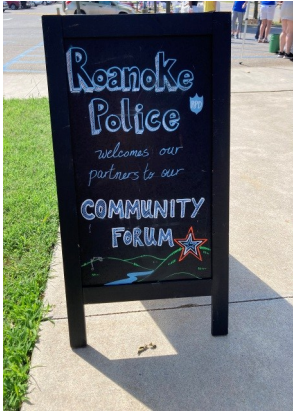 Roanoke
Police
welcomes our
partners to our
COMMUNITY
FORUM